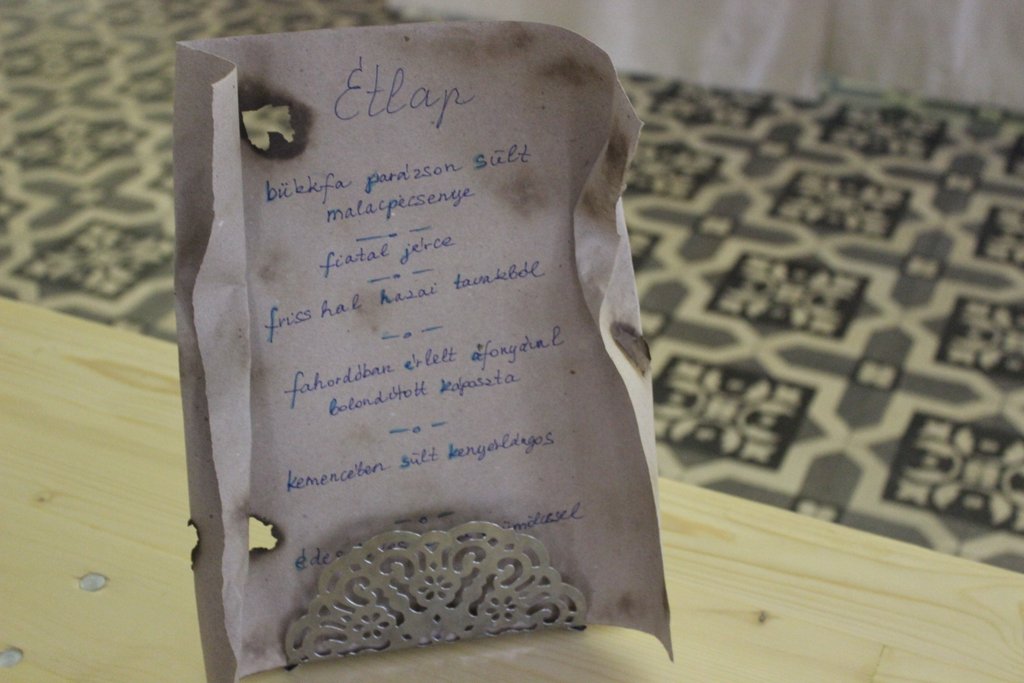 Étlap
bükkfa parázson sült
malacpecsenye
fiatal jérce
friss hal hazai tavakból
fahordóban érlelt áfonyával
bolondított káposzta
kemencében sült kenyérlángos